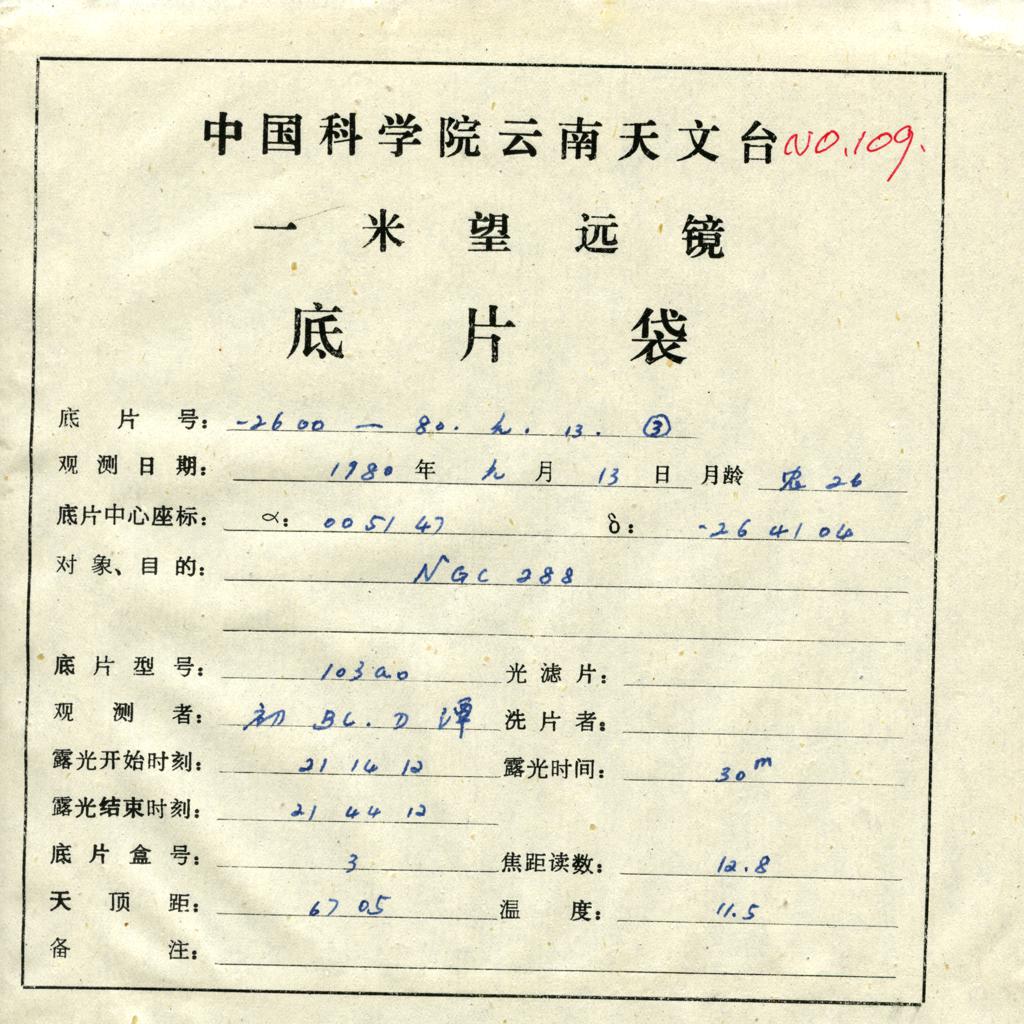 中国科学院云南天文台 NO.109.
一米望远镜
底片袋
底片号: -2600 — 80. 九. 13. ③
观测日期: 1980 年 九 月 13 日 月龄 农 26
底片中心座标: α: 00 51 47 δ: -26 41 04
对象、目的: NGC 288
底片型号: 103aO 光滤片:
观测者: 初 BC. D 谭 洗片者:
露光开始时刻: 21 14 12 露光时间: 30m
露光结束时刻: 21 44 12
底片盒号: 3 焦距读数: 12.8
天顶距: 67 05 温度: 11.5
备注: